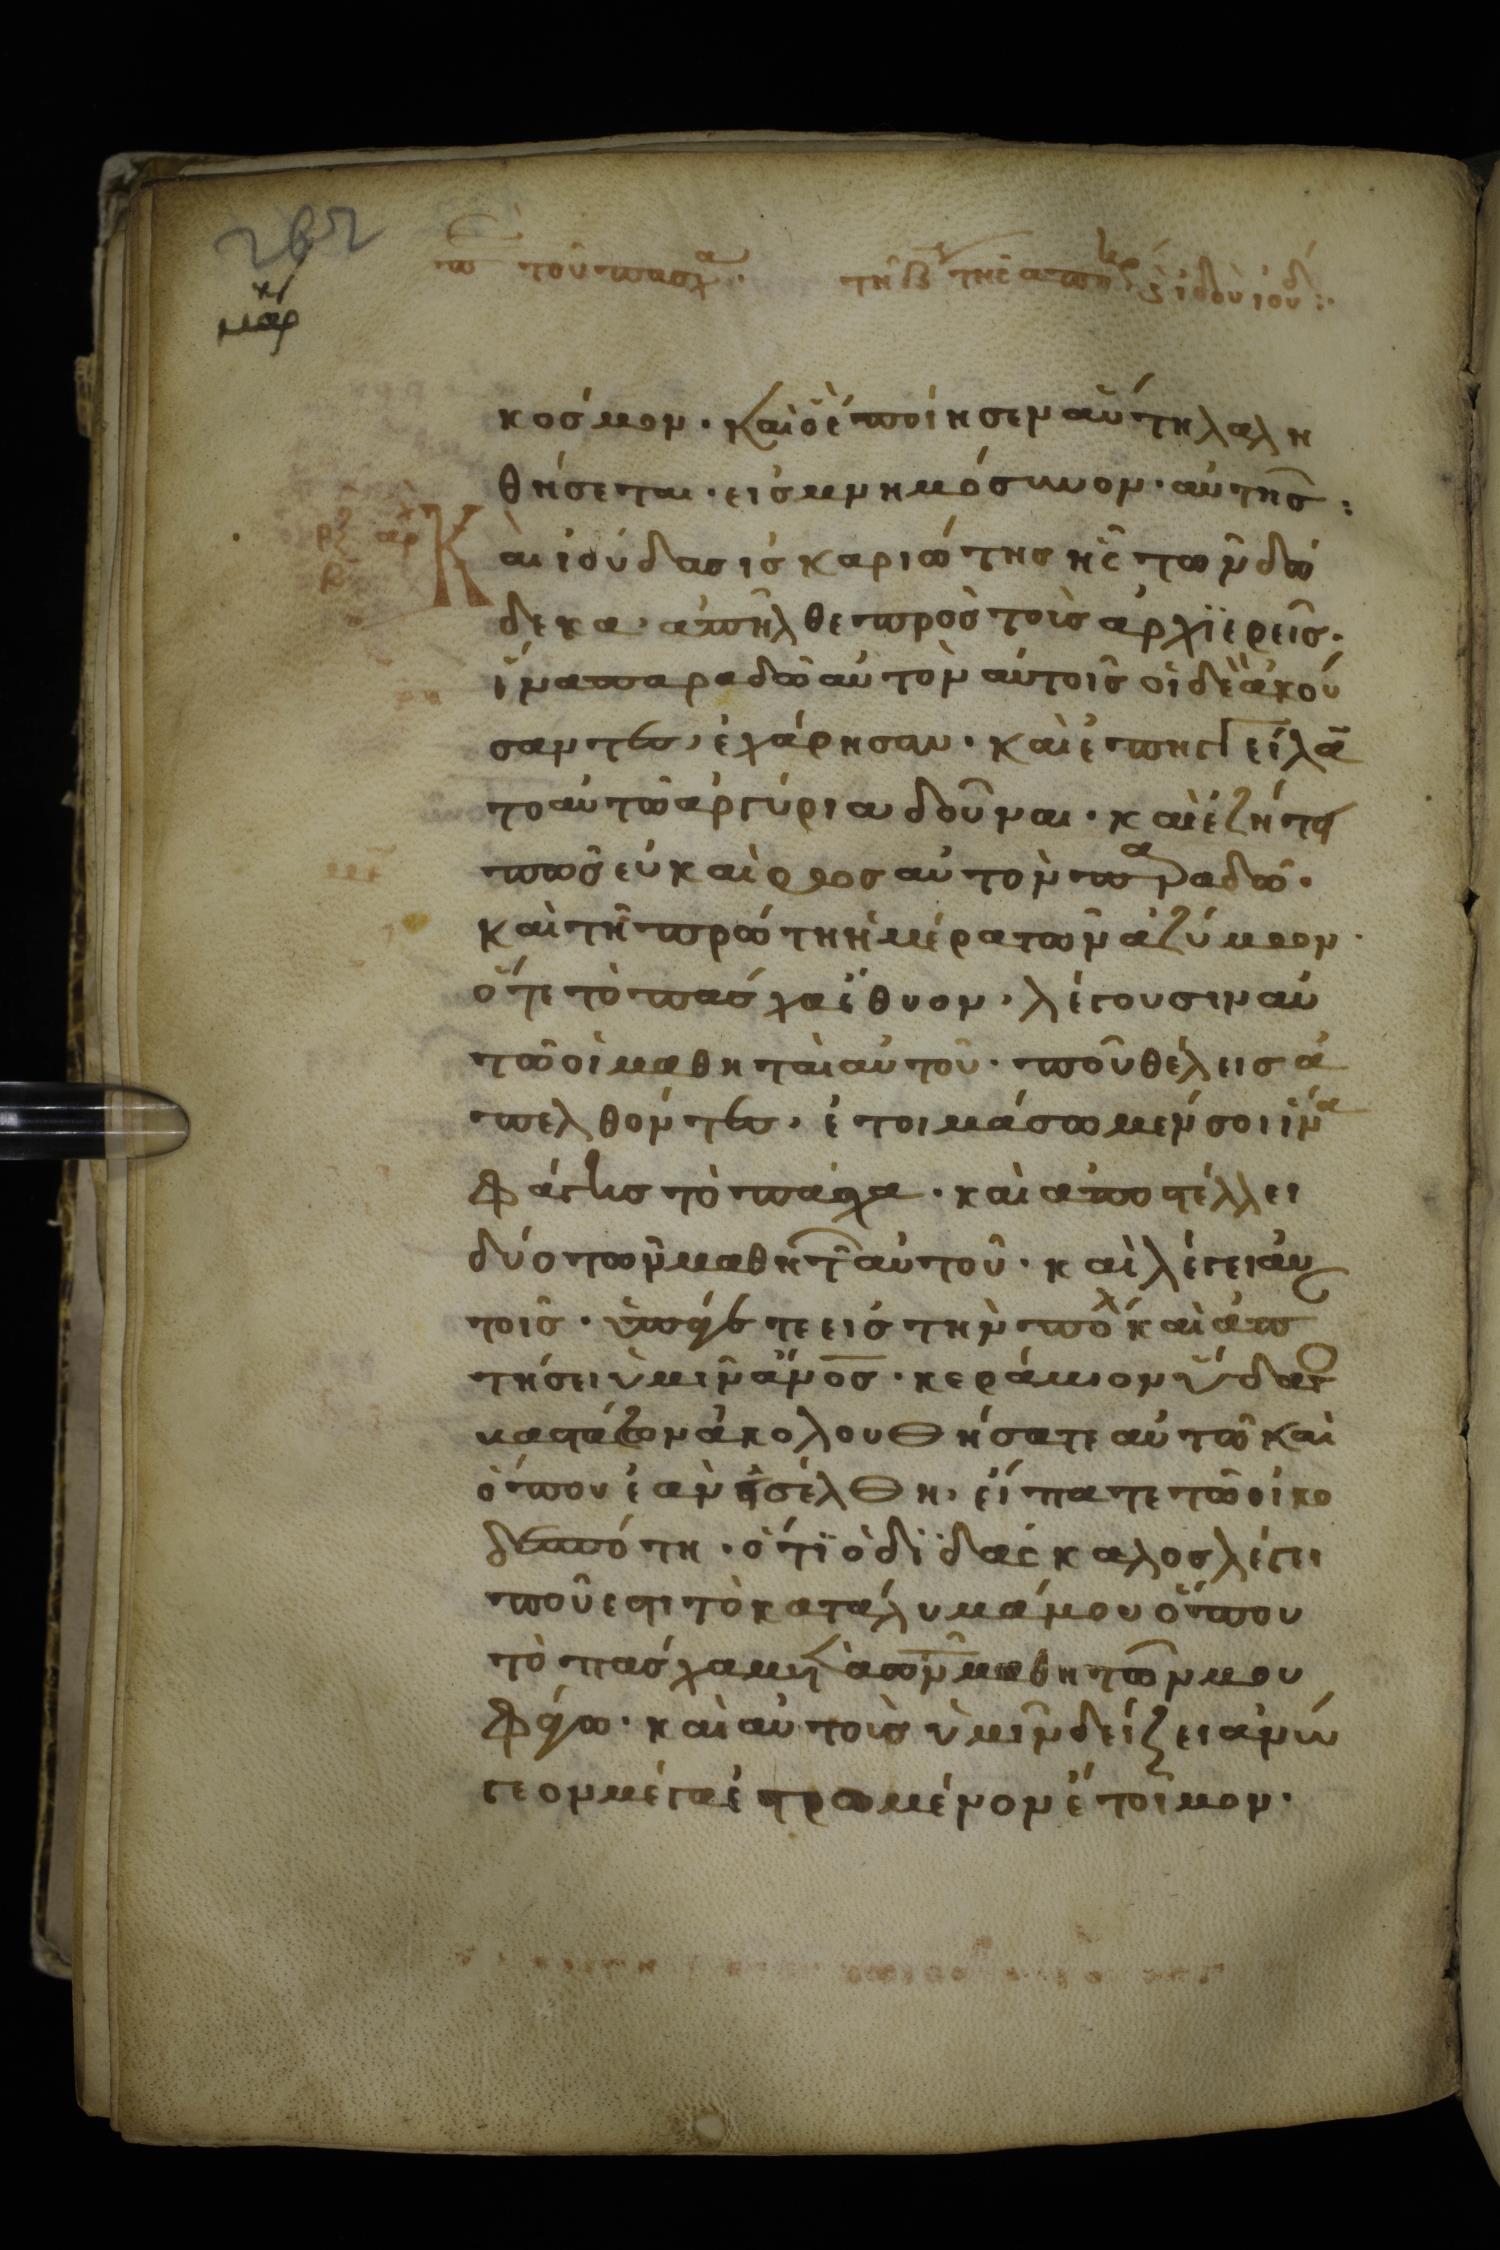 κόσμον. καὶ ὃ ἐποίησεν αὕτη λαλη
θήσεται. εἰς μνημόσυνον. αὐτῆς:
Κὰι ἰούδας ἰσκαριώτης ἧς τῶν δώ
δεκα. ἀπῆλθε πρὸς τοὶς ἀρχϊερεῖς.
ἵνα παραδῶ αὐτὸν αὐτοῖς οἱ δὲ ἀκού
σαντες, ἐχάρησαν. καὶ ἐπηγγείλα̅
το αὐτῶ ἀργύρια δοῦναι. καὶ ἐζήτει
πῶς εὐκαίρως αὐτὸν παραδῶ.
καὶ τῆ πρώτη ἡμέρα τῶν ἀζύμων.
ὅτε τὸ πάσχα ἔθυον, λέγουσιν αὐ
τῶ οἱ μαθηταὶ αὐτοῦ. ποῦ θέλεις ἀ
πελθόντες, ἑτοιμάσωμέν σοι ἵνα
φάγης τὸ πάσχα. καὶ ἀποστέλλει
δύο τῶν μαθητῶν αὐτοῦ. καὶ λέγει αὐ
τοῖς. ὑπάγετε εἰς τὴν πόλ καὶ ἀπα
τήσει ὑμῖν ἄν̅ο̅ς̅. κεράμιον ὕδατο
βαστάζων ἀκολουθήσατε αὐτῶ καὶ
ὅπου ἐὰν εἰσέλθη, εἴπατε τῶ οἰκο
δεσπότη. ὅτϊ ὁ δϊδάσκαλος λέγει
ποῦ ἐστι τὸ κατάλυμά μου ὅπου
τὸ πάσχα μετὰ τῶν μαθητῶν μου
φάγω. καὶ αὐτοὶς ὑμῖν δείξει ἀνώ
γεον μέγα ἐστρωμένον ἕτοῖμον.